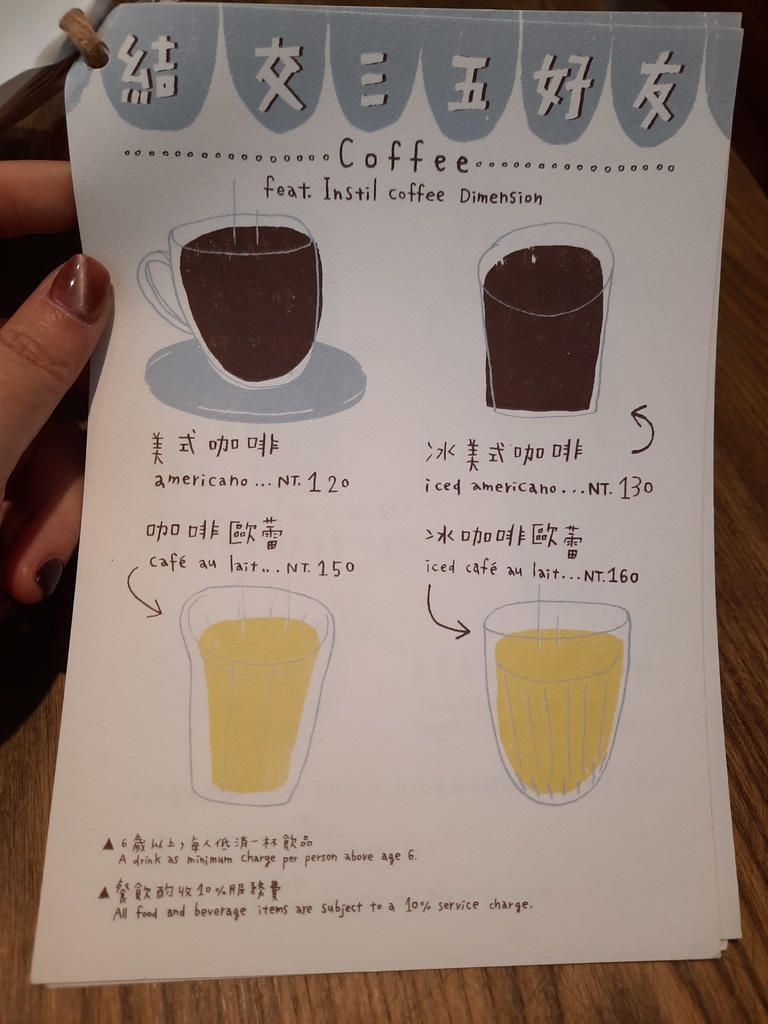 結交三五好友
Coffee
feat. Instil coffee Dimension
美式咖啡
americano...NT.120
冰美式咖啡
iced americano...NT.130
咖啡歐蕾
café au lait...NT.150
冰咖啡歐蕾
iced café au lait...NT.160
▲6歲以上，每人低消一杯飲品
A drink as minimum charge per person above age 6.
▲餐飲酌收10%服務費
All food and beverage items are subject to a 10% service charge.